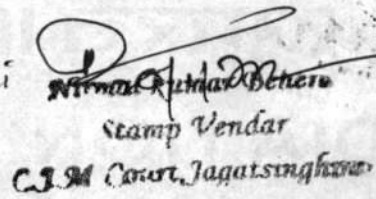 Kumar Behera
Stamp Vendar
C.J.M Court, Jagatsinghpur